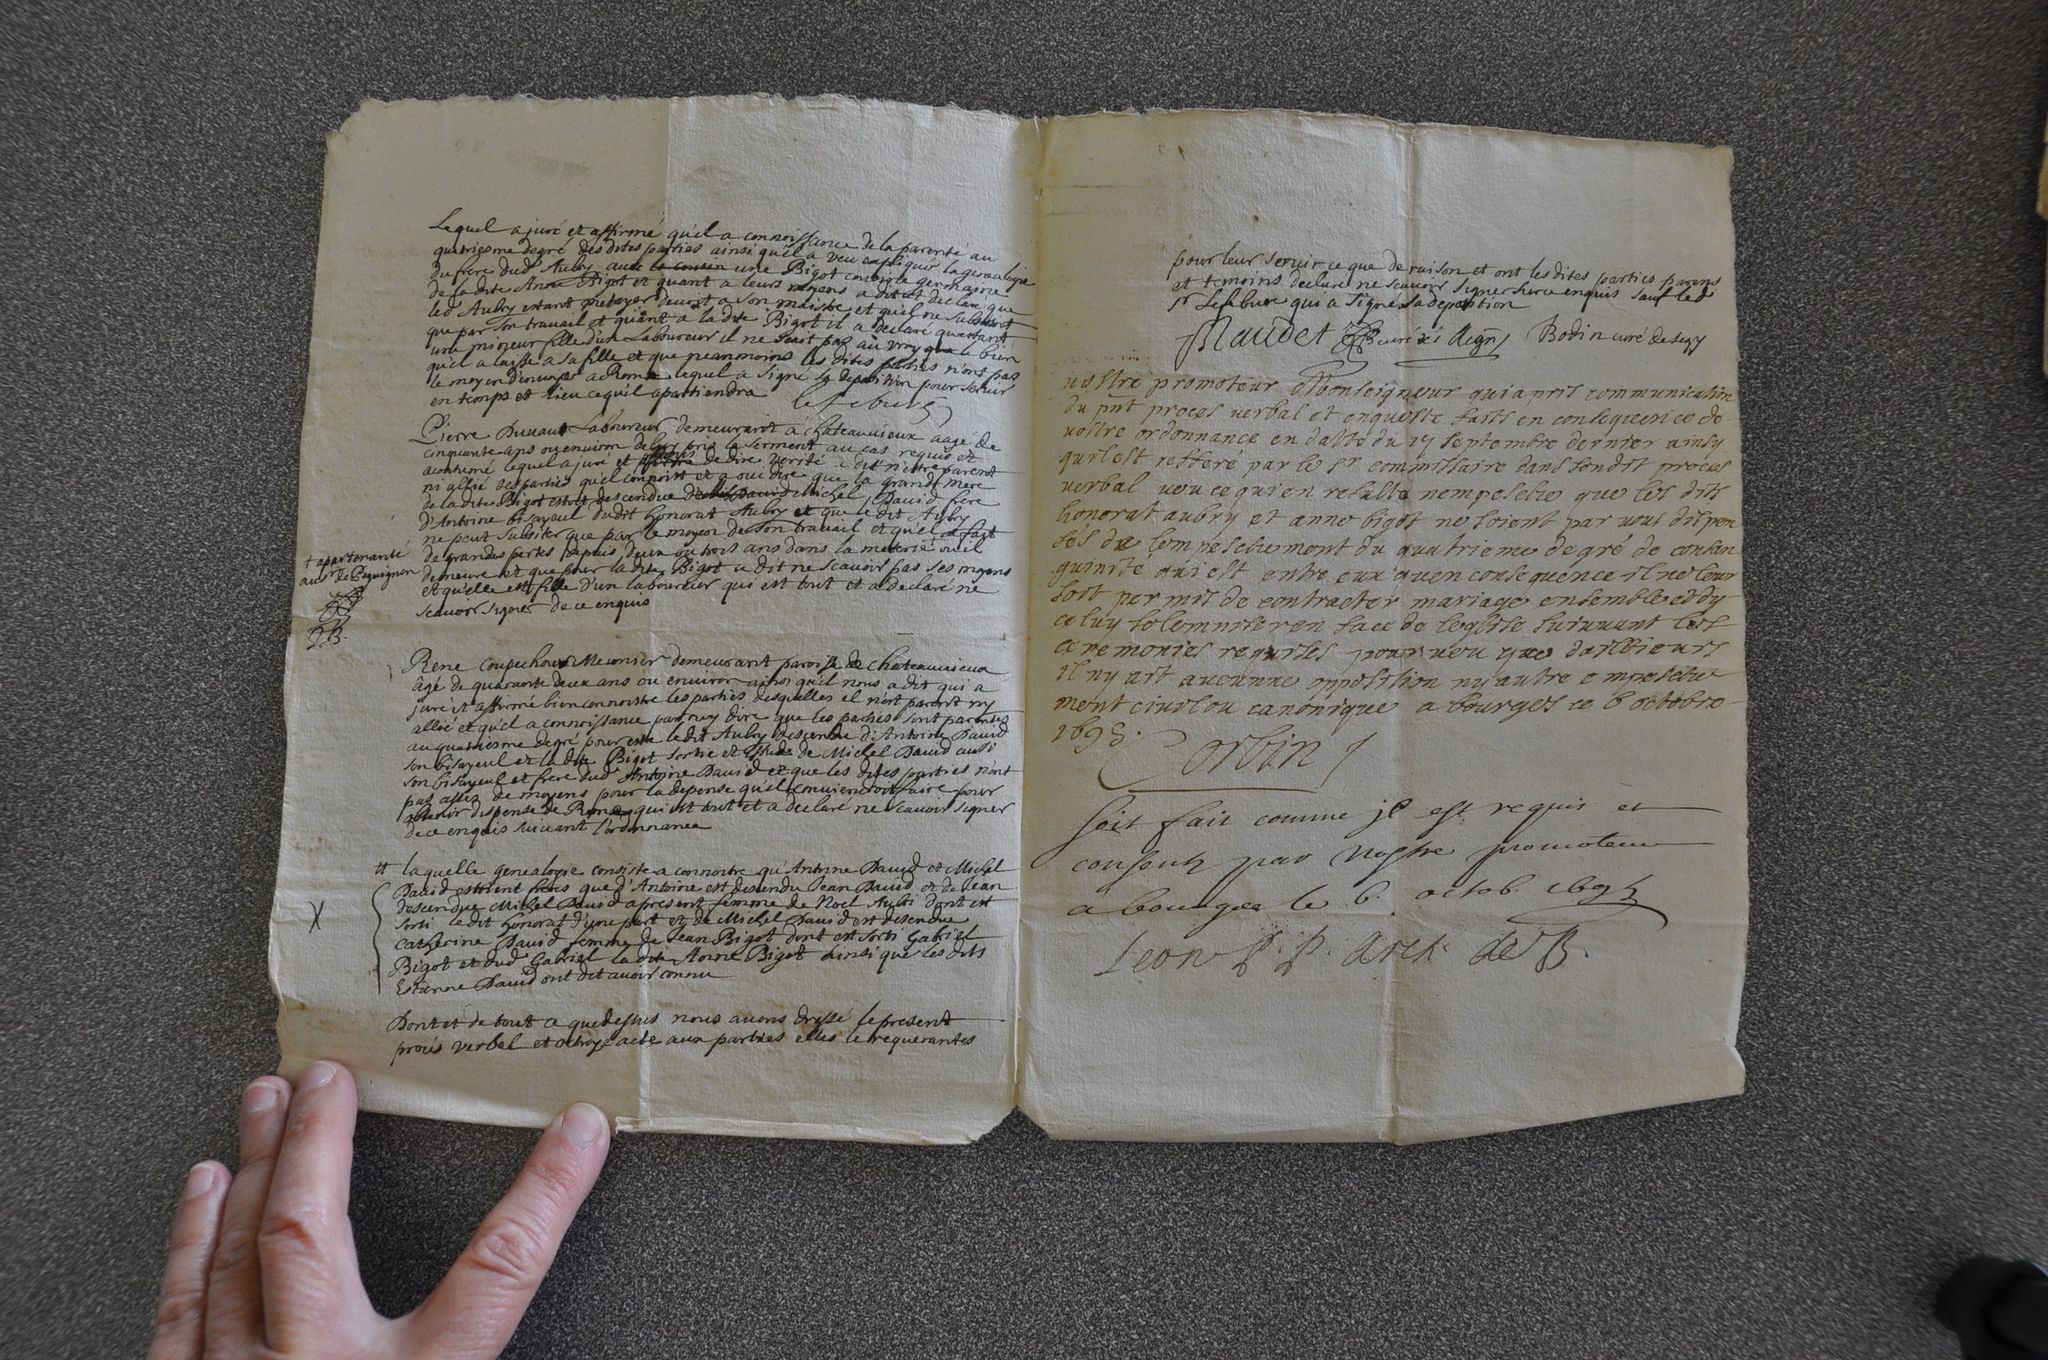 Lequel a juré et affirmé qu'il a connoissance de la parenté au
quatriesme degré des dites parties ainsi qu'il a veu expliquer la genealogie
du frere dud Aubry avec la cousin une Bigot cousine germaine
de la dite Anne Bigot et quant a leurs moyens a dit et declaré que
led Aubry estant metayer devoit a son maistre et qu'il ne subsistoit
que par son travail et quant a la dite Bigot il a declaré qu'estant
une mineur fille d'un Laboureur il ne scait pas au vray que le bien
qu'il a laissé a sa fille et que neanmoins les dites parties n'ont pas
le moyen d'envoyer a Rome lequel a signé sa deposition pour servir
en temps et lieu ce qu'il apartiendra lefebure
Pierre Laboureur demeurant a chateauvieux aagé de
cinquante ans ou environ deluy pris le serment au cas requis et
acoutumé lequel a juré et de dire verité a dit n'estre parent
ni allié des parties qu'il connoist et a oui dire que la grandt mere
de la dite Bigot estoit descendue Michel David frere
d'Antoine bisayeul dudit honorat Aubry et que le dit Aubry
ne peut subsister que par le moyen de son travail et qu'il a fait
de grandes pertes depuis deux ou trois ans dans la meterie ou il
+ apartenante
au sr de Piquignon
demeure et que pour la dite Bigot a dit ne scavoir pas ses moyens
et qu'elle est fille d'un laboureur qui est tout et a declaré ne
scavoir signer de ce enquis
JB.
René Coupechoux Meunier demeurant paroisse de chateauvieux
âgé de quarante deux ans ou environ ainsi qu'il nous a dit qui a
juré et affirmé bien connoistre les parties desquelles il n'est parent ny
allié et qu'il a connoissance par ouy dire que les parties sont parentes
au quatriesme degré pour estre ledit Aubry descendu d'Antoine David
son bisayeul et la dite Bigot sortie et de Michel David aussi
son bisayeul et frere dud Antoine David et que les dites parties n'ont
pas assez de moyens pour la depense qu'il conviendroit faire pour
obtenir dispense de Rome qui est tout et a declaré ne scavoir signer
de ce enquis suivant l'ordonnance
# laquelle genealogie consiste a connoitre qu'Antoine David et Michel
David estoient freres que d'Antoine est descendu Jean David et de Jean
descendue Michel David a present femme de Noel Aubri dont est
X
sorti ledit honorat d'une part et de Michel David est descendue
Catherine David femme de Jean Bigot dont est sorti Gabriel
Bigot et dud Gabriel la dite Anne Bigot ainsi que les dits
Estienne David ont dit avoir connu
Dont et de tout ce que dessus nous avons dressé le present
procés verbal et octroyé acte aux parties elles le requerantes
pour leur servir ce que de raison et ont les dites parties parens
et temoins declaré ne scavoir signer de ce enquis sauf led
sr Lefebure qui a signé sa deposition
Maudet curé de Bodin curé de
nostre promoteur Monseigneur qui a pris communication
du pnt proces verbal et enqueste faits en consequence de
vostre ordonnance en datte du 17 septembre dernier ainsy
qu'il est refferé par le sr commissaire dans sondit proces
verbal veu ce qui en resulte n'empesche que les dits
honorat aubry et anne bigot ne soient par vous dispen
sés de l'empeschement du quatrieme degré de consan
guinité qui est entre eux qu'en consequence il ne leur
soit permis de contracter mariage ensemble et dy
celuy solemniser en face de l'eglise suivant les
ceremonies requises pourveu que d'ailleurs
il n'y ait aucunne opposition ny autre empesche
ment civil ou canonique a bourges ce 6 octobre
1698. Corbin
Soit fait comme il est requis et
consenty par nostre promoteur
a bourges le 6. octob. 1698
Leon P. P. Arch. de B.